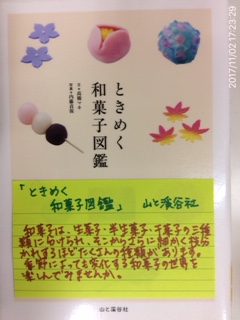 ときめく
和菓子図鑑
文●高橋マキ
写真●内藤貞保
「ときめく
和菓子図鑑」 山と溪谷社
和菓子は、生菓子・半生菓子・干菓子の三種
類に分けられ、そこからさらに細かく枝分
かれするほどたくさんの種類があります。
季節によっても変化する和菓子の世界を
楽しんでみませんか。
山と溪谷社
2017/11/02 17:23:29